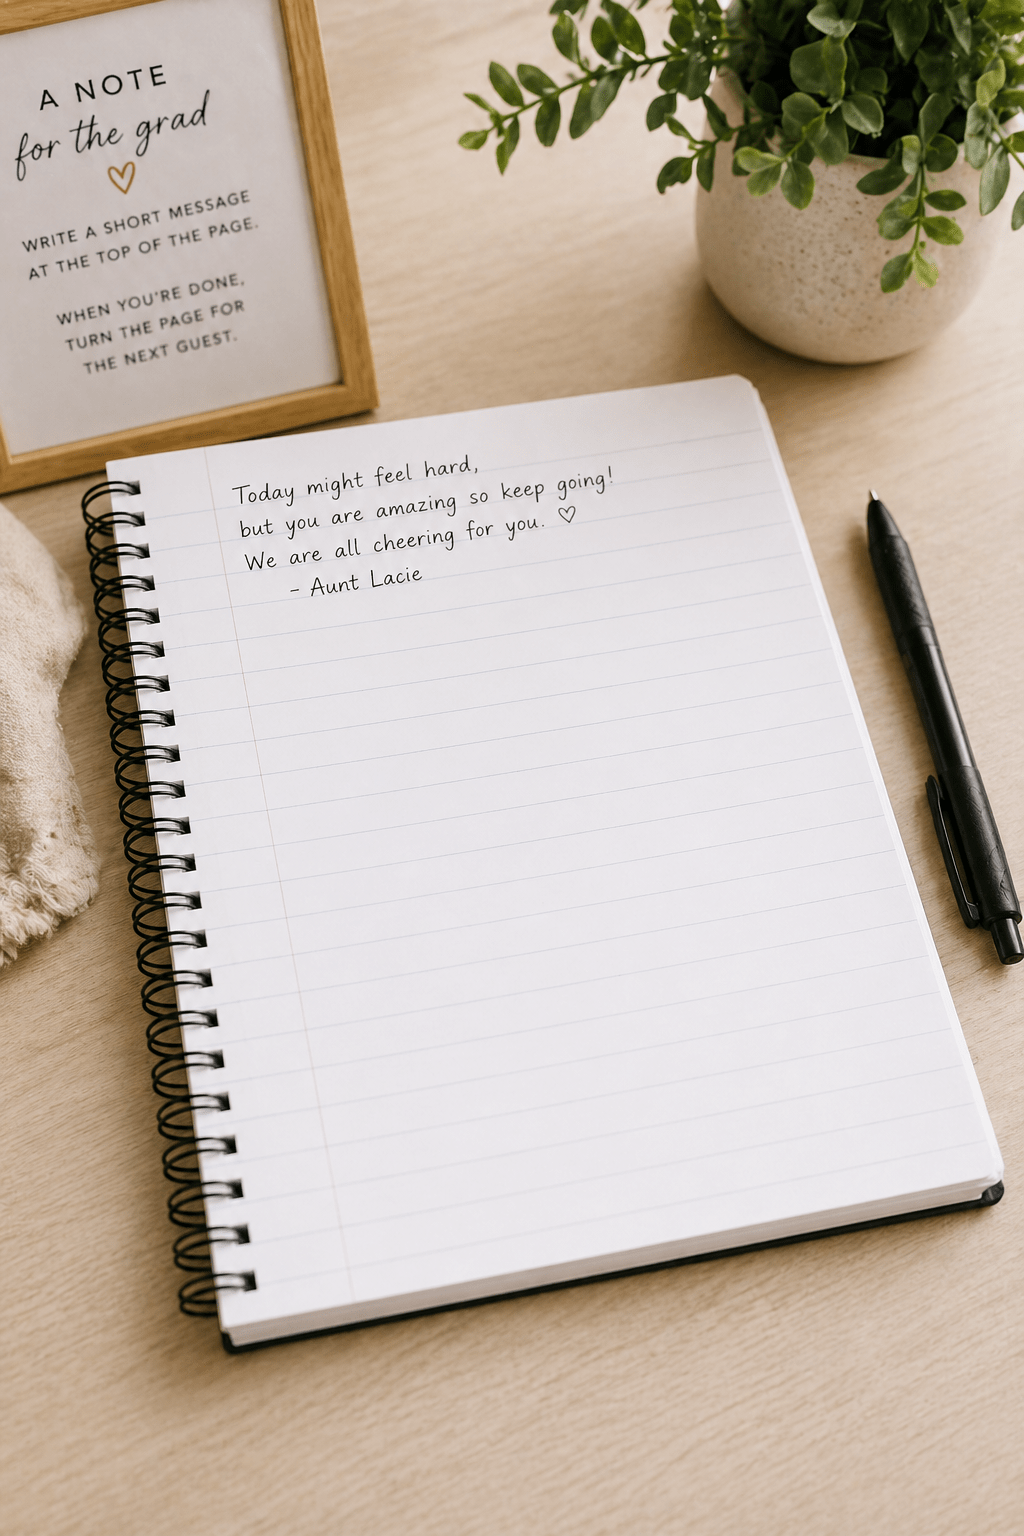 A NOTE
for the grad
WRITE A SHORT MESSAGE
AT THE TOP OF THE PAGE.
WHEN YOU'RE DONE,
TURN THE PAGE FOR
THE NEXT GUEST.
Today might feel hard,
but you are amazing so keep going!
We are all cheering for you. ♡
- Aunt Lacie